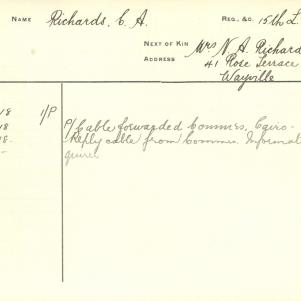 NAME Richards, C. A. REG., &C. 15th L.
NEXT OF KIN Mrs N. A. Richard
ADDRESS 41 Rose Terrace
Wayville
18 1/P P/Cable forwarded Commrs, Cairo.-
18 Reply cable from Commrs. Informat